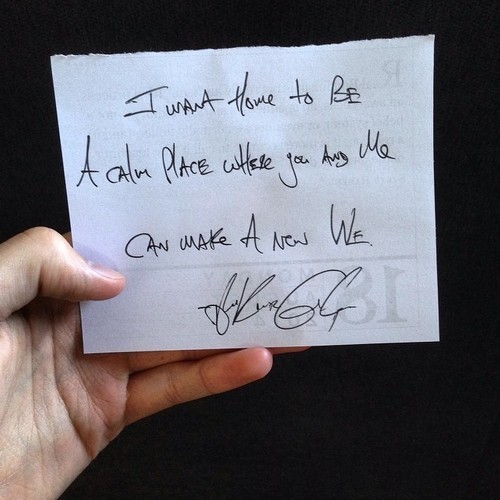 I WANT Home to BE
A CALM PLACE WHERE you AND Me
CAN MAKE A NEW WE.